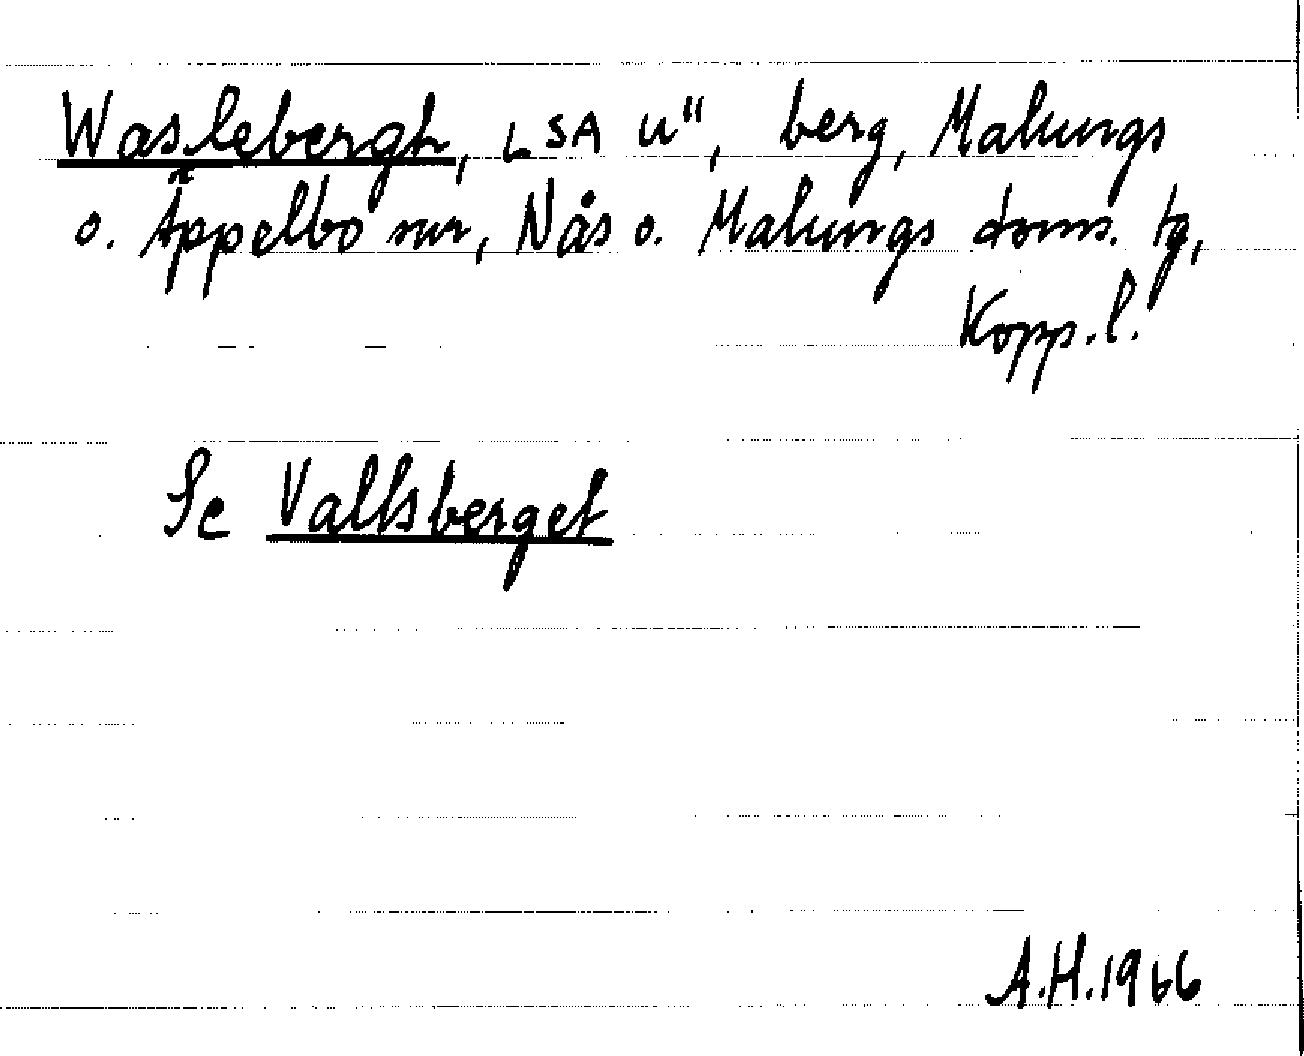 Waslebergh, LSA U", berg, Malungs
o. Äppelbo snr, Nås o. Malungs doms. tg,
Kopp.l.
Se Vallsberget
A.H.1966